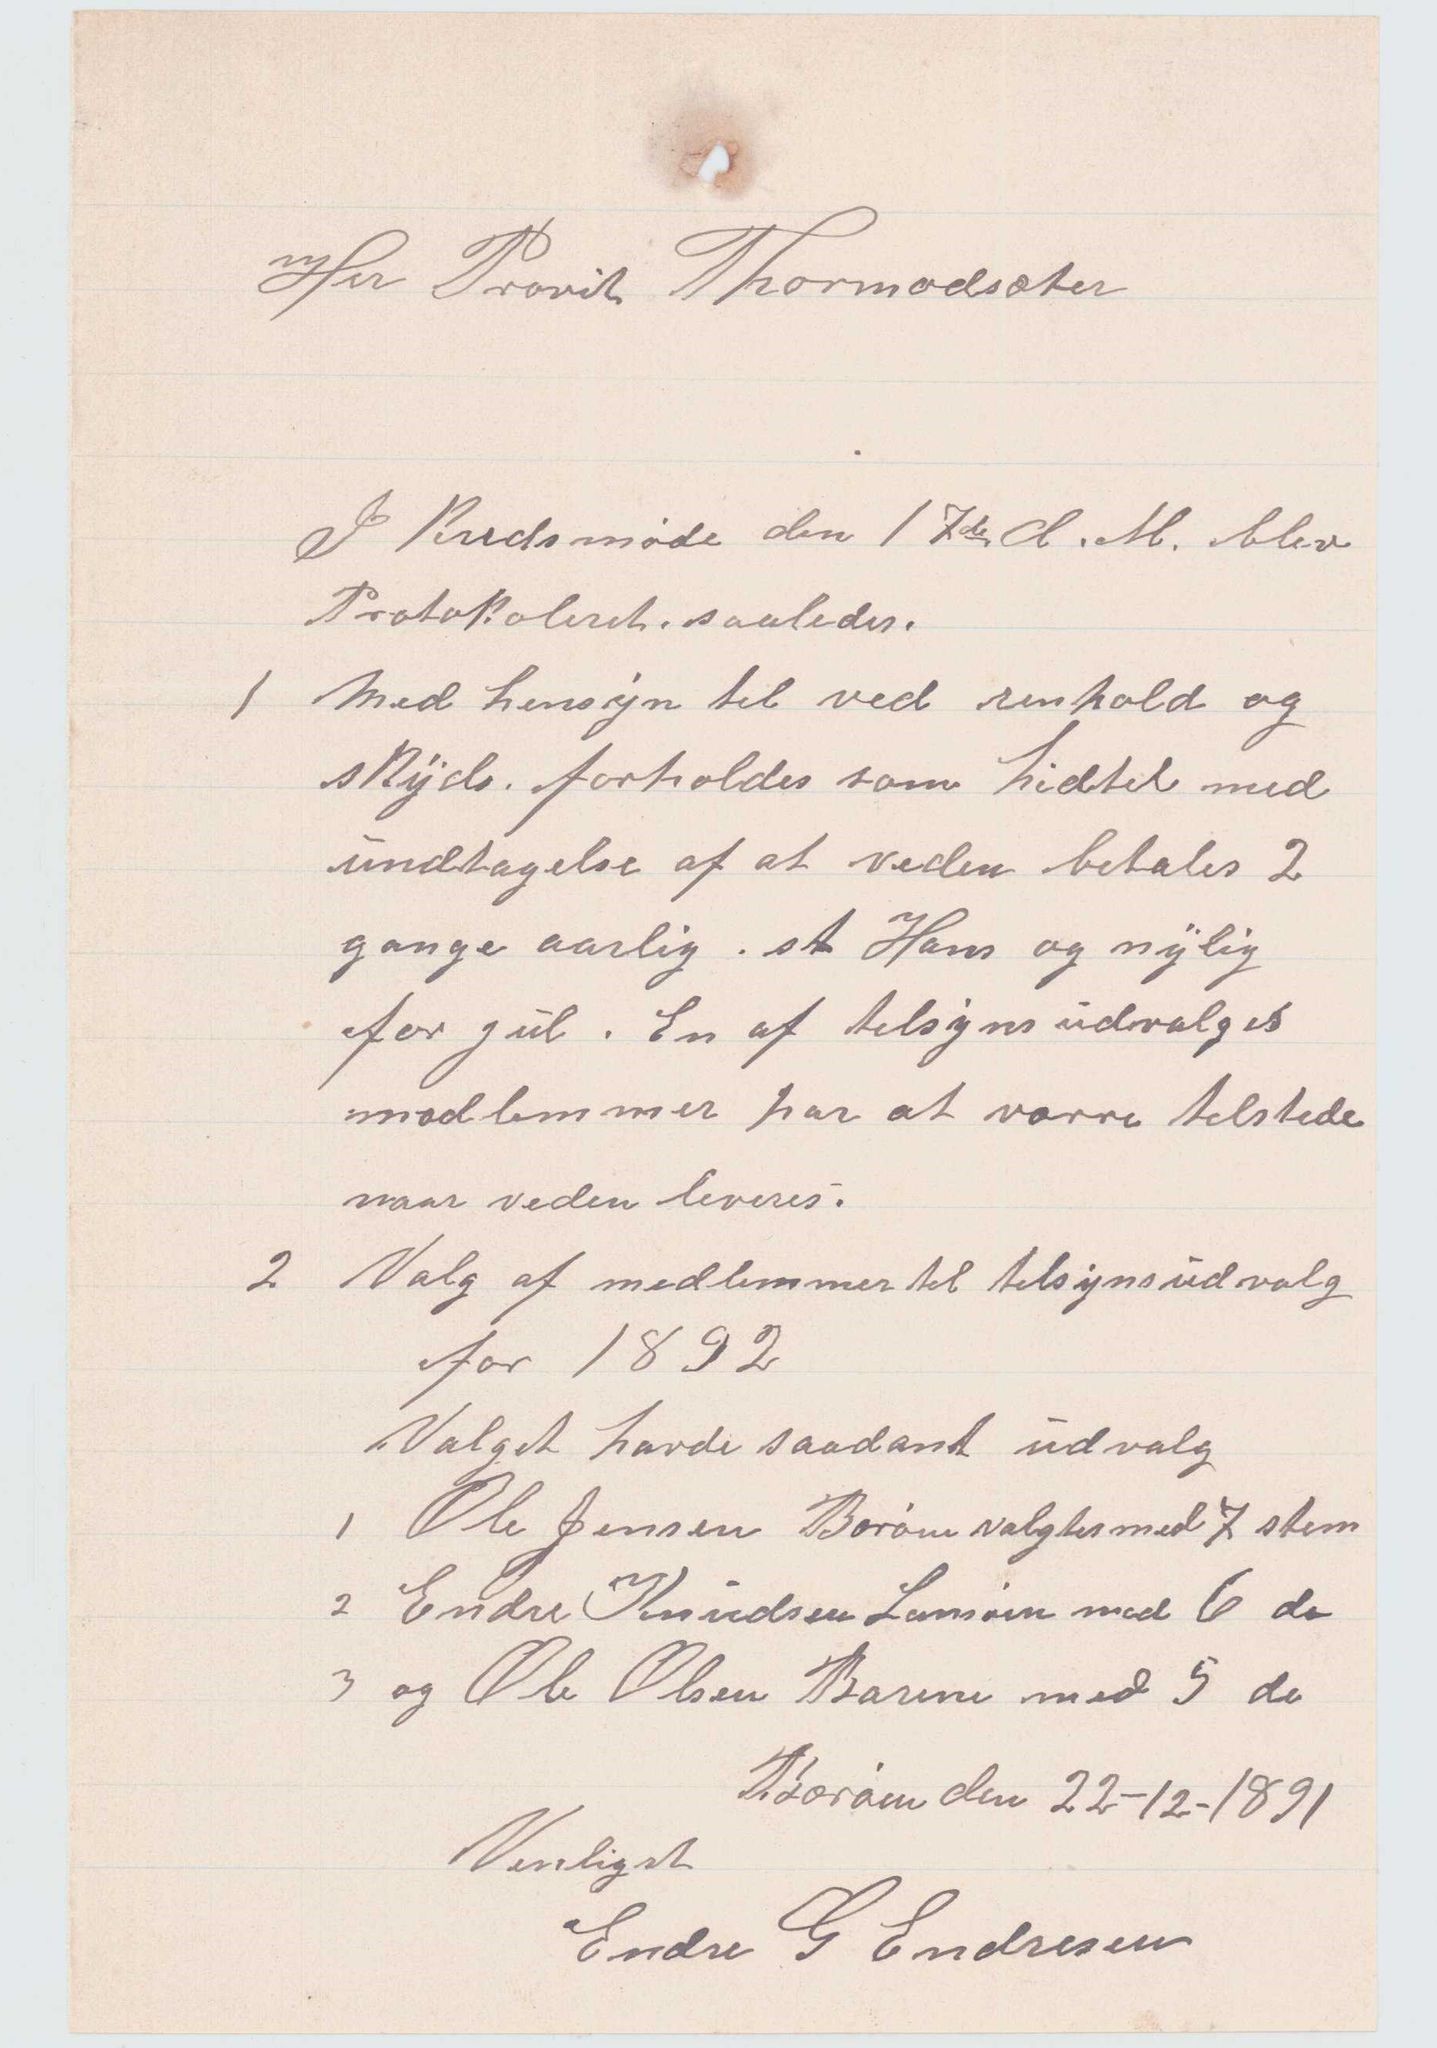 Her Provst Thormodsæter
I Kredsmøde den 17de d. M. blev
Protokoleret. saaledes.
1 Med hensÿn tel ved renhold og
skÿds. forholdes som hidtel med
undtagelse af at veden betales 2
gange aarlig. st Hans og nÿlig
før jul. En af telsÿns udvalges
medlemmer har at vorre telstede
naar veden leveres.
2 Valg af medlemmer tel telsÿnsudvalg
for 1892
Valget havde saadant udvalg
1 Ole Jensen Borøen valgtes med 7 stem
2 Endre Knudsen med 6 do
3 og Ole Olsen med 5 do
Borøen den 22-12-1891
Venligst
Endre G Endresen